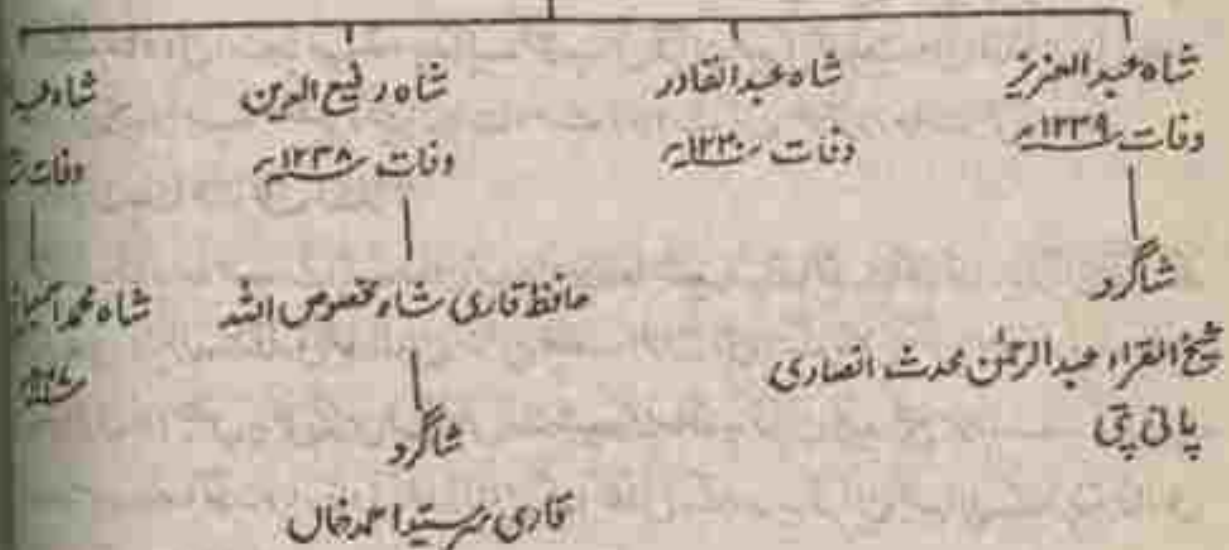 شاہ عبدالعزیز
وفات ۱۲۳۹ھ
شاگرد
شیخ القراء عبدالرحمٰن محدث انصاری
پانی پتی
شاہ عبدالقادر
وفات ۱۲۳۰ھ
شاہ رفیع الدین
وفات ۱۲۳۸ھ
حافظ قاری شاہ مخصوص اللہ
شاگرد
قاری سرسید احمد خاں
شاہ
وفات
شاہ محمد